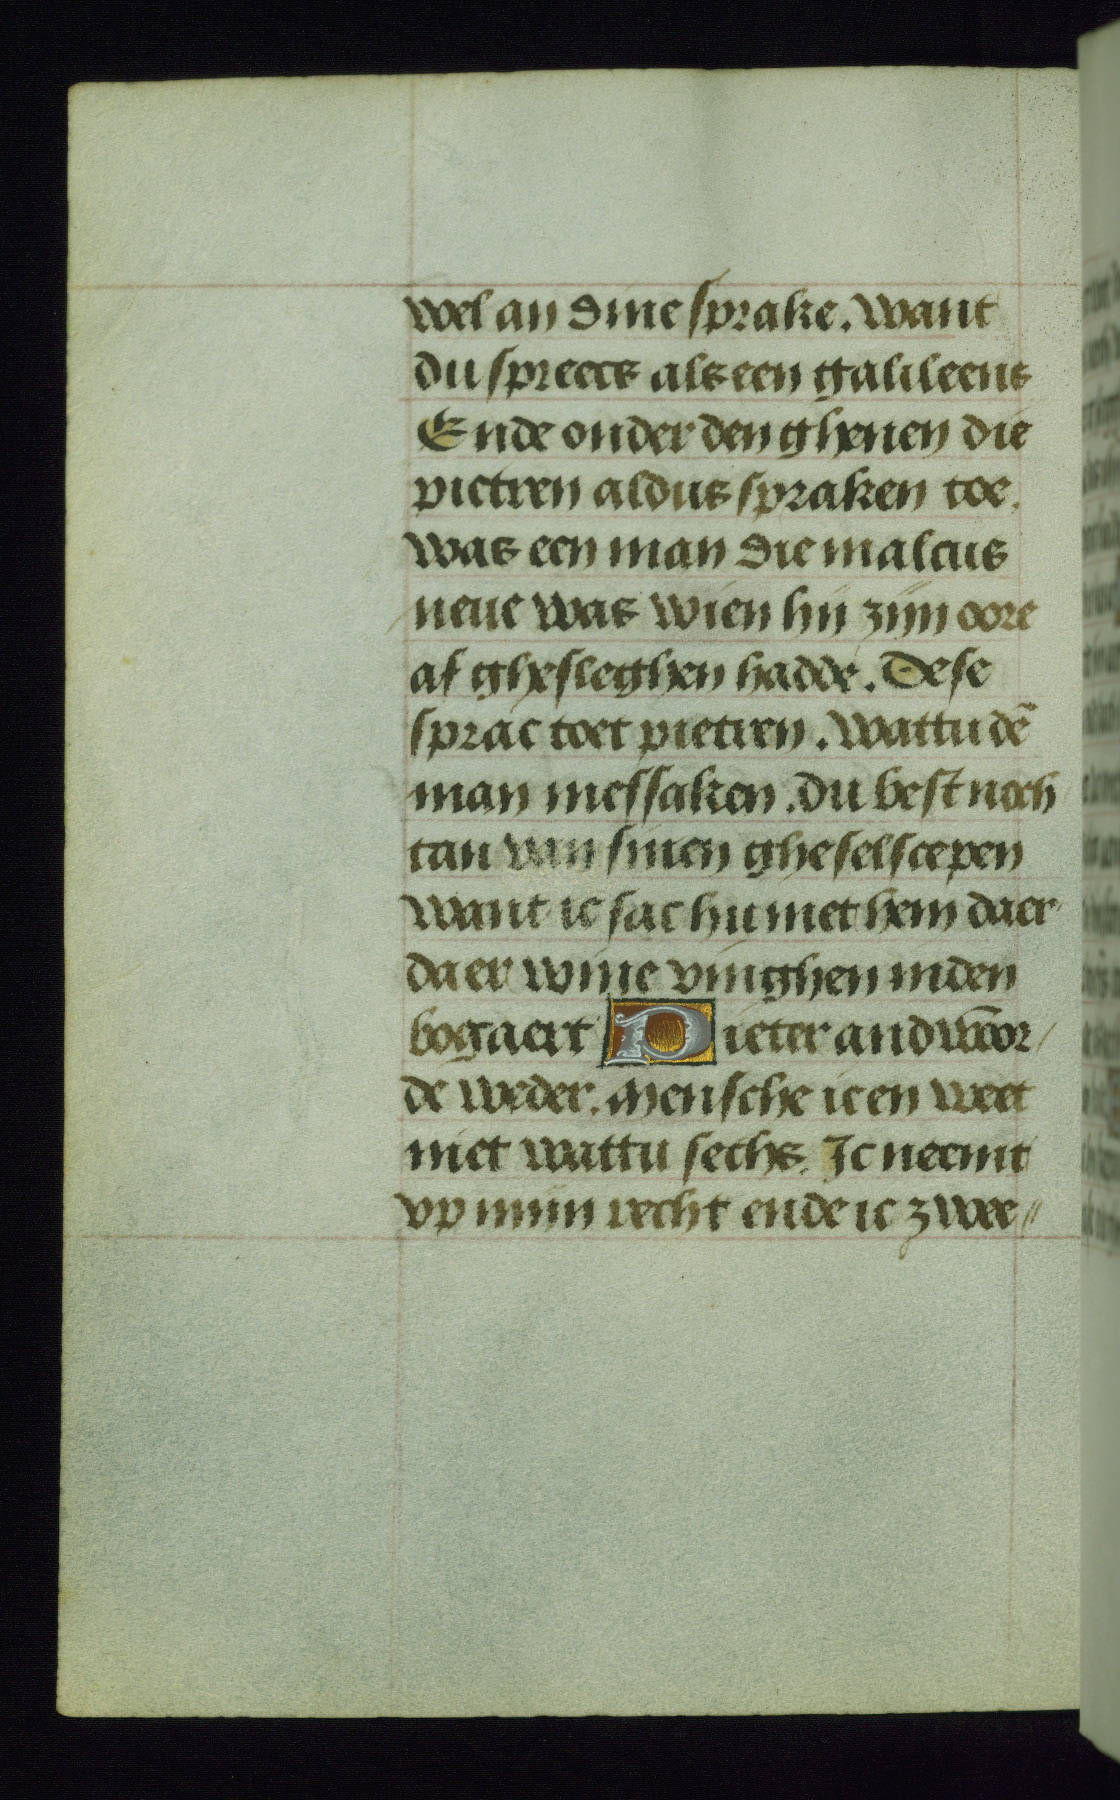 wel an dine sprake. want
du spreecs als een galileens
Ende onder den ghenen die
pietren aldus spraken toe.
was een man die malcus
neue was wien hij zijn oore
af ghesleghen hadde. Dese
sprac toet pietren. wattu dē
man messaken. du best noch
tan van sinen gheselscepen
want ic sac hu met hem daer
daer wine vinghen inden
bogaert Pieter andwoor
de weder. Mensche ic en weet
niet wattu sechs. Ic neemt
vp mijn recht ende ic zwee